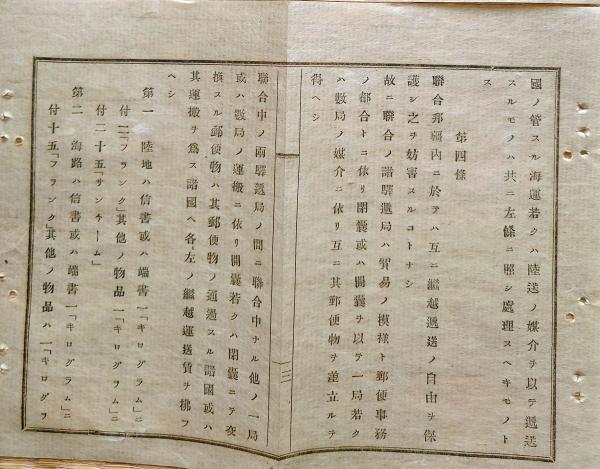 國ノ管スル海運若クハ陸送ノ媒介ヲ以テ遞送
スルモノハ共ニ左條ニ照シ處理スヘキモノト
ス
第四條
聯合邦疆内ニ於テハ互ニ繼越遞送ノ自由ヲ保
護シ之ヲ妨害スルコトナシ
故ニ聯合ノ諸驛遞局ハ貿易ノ模樣ト郵便事務
ノ都合トニ依リ閉囊或ハ開囊ヲ以テ一局若ク
ハ數局ノ媒介ニ依リ互ニ其郵便物ヲ差立ルヲ
得ヘシ
三
聯合中ノ兩驛遞局ノ間ニ聯合中ナル他ノ一局
或ハ數局ノ運搬ニ依リ開囊若クハ閉囊ニテ交
換スル郵便物ハ其郵便物ノ通過スル諸國或ハ
其運搬ヲ爲ス諸國ヘ各左ノ繼越運送賃ヲ拂フ
ヘシ
第一 陸地ハ信書或ハ端書一「キログラム」ニ
付二「フランク」其他ノ物品一「キログラム」ニ
付二十五「サンチーム」
第二 海路ハ信書或ハ端書一「キログラム」ニ
付十五「フランク」其他ノ物品ハ一「キログラ